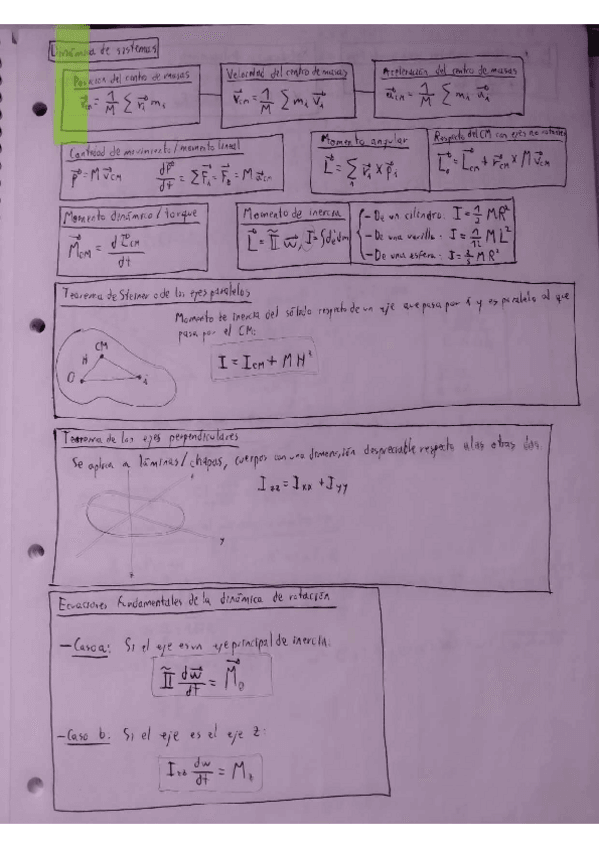 Dinámica de sistemas
Posición del centro de masas
r⃗cm = 1/M ∑ r⃗i mi
Velocidad del centro de masas
v⃗cm = 1/M ∑ mi v⃗i
Aceleración del centro de masas
a⃗cm = 1/M ∑ mi a⃗i
Cantidad de movimiento/momento lineal
P⃗ = M v⃗CM dP⃗/dt = ∑ F⃗i = F⃗R = M a⃗CM
Momento angular
L⃗ = ∑ r⃗i × p⃗i
Respecto del CM con ejes no rotantes
L⃗o = L⃗cm + r⃗cm × M v⃗cm
Momento dinámico/torque
M⃗CM = dL⃗CM/dt
Momento de inercia
L⃗ = Ĩ w⃗, I = ∫ di² dm
- De un cilindro: I = 1/2 MR²
- De una varilla: I = 1/12 ML²
- De una esfera: I = 2/5 MR²
Teorema de Steiner o de los ejes paralelos
Momento de inercia del sólido respecto de un eje que pasa por i y es paralelo al que
pasa por el CM:
I = ICM + MH²
CM
H
O
i
Teorema de los ejes perpendiculares
Se aplica a láminas/chapas, cuerpos con una dimensión despreciable respecto a las otras dos.
Izz = Ixx + Iyy
y
z
Ecuaciones fundamentales de la dinámica de rotación
- Caso a: Si el eje es un eje principal de inercia.
Ĩ dw⃗/dt = M⃗o
- Caso b: Si el eje es el eje z:
Izz dw/dt = Mz